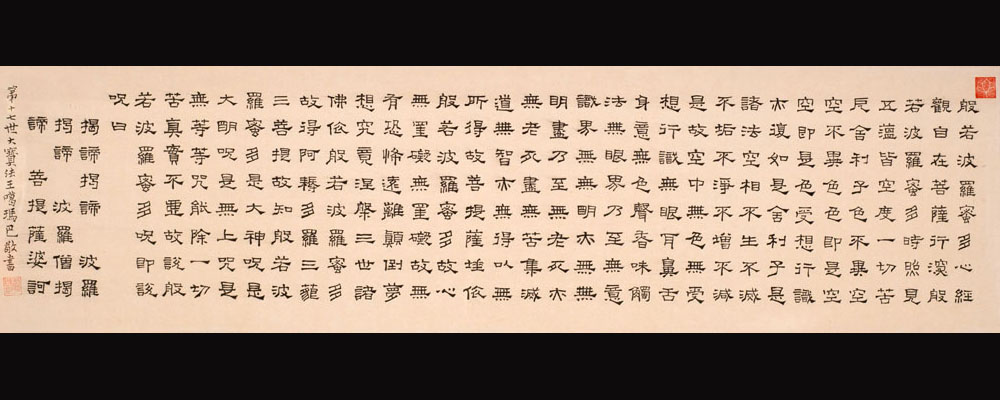 般若波羅蜜多心經
觀自在菩薩行深般
若波羅蜜多時照見
五蘊皆空度一切苦
厄舍利子色不異空
空不異色色即是空
空即是色受想行識
亦復如是舍利子是
諸法空相不生不滅
不垢不淨不增不減
是故空中無色無受
想行識無眼耳鼻舌
身意無色聲香味觸
法無眼界乃至無意
識界無無明亦無無
明盡乃至無老死亦
無老死盡無苦集滅
道無智亦無得以無
所得故菩提薩埵依
般若波羅蜜多故心
無罣礙無罣礙故無
有恐怖遠離顛倒夢
想究竟涅槃三世諸
佛依般若波羅蜜多
故得阿耨多羅三藐
三菩提故知般若波
羅蜜多是大神呪是
大明呪是無上呪是
無等等咒能除一切
苦真實不虛故說般
若波羅蜜多呪即說
呪曰
揭諦揭諦 波羅
揭諦 波羅僧揭
諦 菩提薩婆訶
第十七世大寶法王噶瑪巴敬書